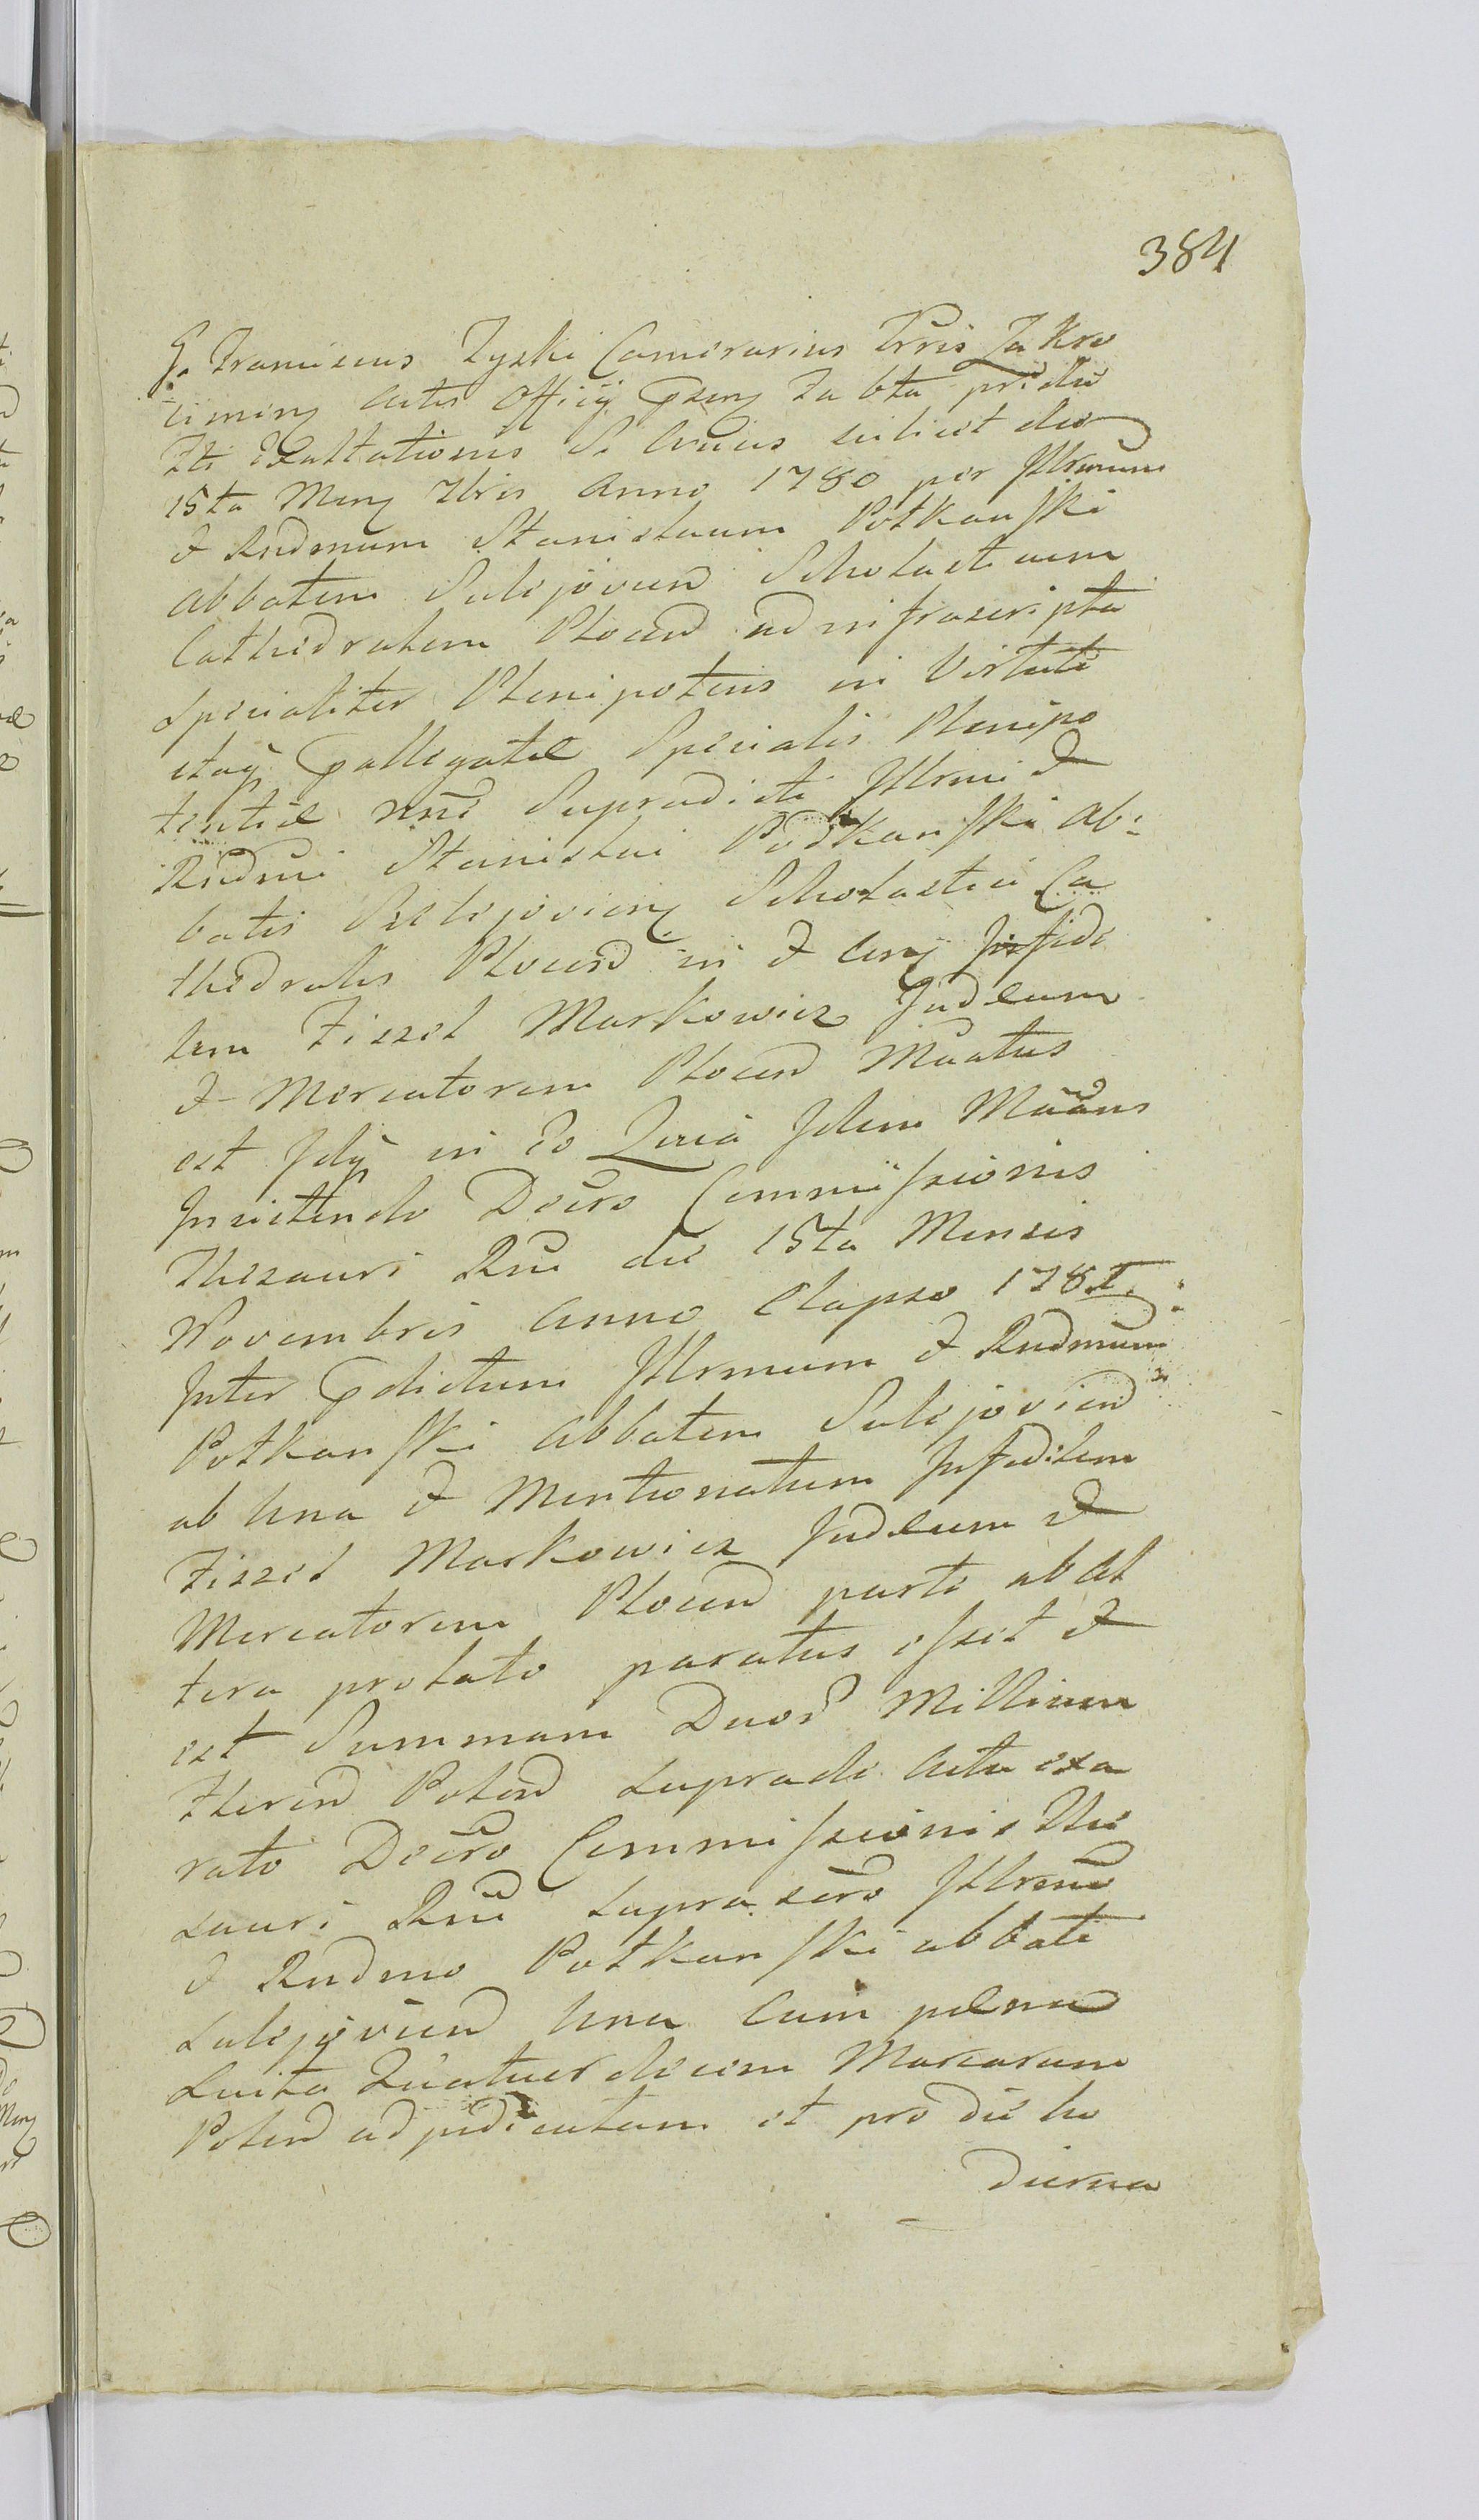 384
G. Franciscus Zyski Camerarius Trris Zakro
cimin̄ Actis Officij Gsen̄ Za bta pridie
Fti Exaltationis S. Crucis scilicet die
15ta Men̄ 7bris Anno 1780 per Jllrmum
& Rndmum Stanislaum Potkanſki
Abbatem Sulejovien̄ Scholasticum
Cathedralem Plocen̄ ad infrascripta
Specialiter Plenipotens in Virtute
ejusq̄ Gallegatæ Specialis Plenipo
tentiæ nn̄e Supradicti Jllrmi &
Rndmi Stanislai Podkanſki Ab:
batis Sulejovien̄ Scholastici Ca
thedralis Plocen̄ in & Con̄ Jnfide
lem Fiszel Markowicz Judæum
& Mercatorem Plocen̄ Mōatus
est Jdq̄ in eo Quia Jdem Mōans
Jnsistendo Decro Commiſsionis
Thesauri Rni die 15ta Mensis
Novembris Anno Elapso 1781.
Jnter Gdictum Jllrmum & Rndmum
Potkanſki Abbatem Sulejovien̄
ab Una & Mentionatum Jnfidilem
Fiszel Markowicz Judæum &
Mercatorem Plocen̄ parte ab Al
tera prolato paratus eſset &
est Summam Duor̄ Millium
Floren̄ Polon̄ supra de Actu exa
rato Decro Commiſsionis The
sauri Rni supra scro Jllrmo
& Rndmo Potkanſki abbati
Sulejovien̄ Una Cum pœna
Luita Quatuordecim Marcarum
Polon̄ adjudicatam et pro die ho
dierna